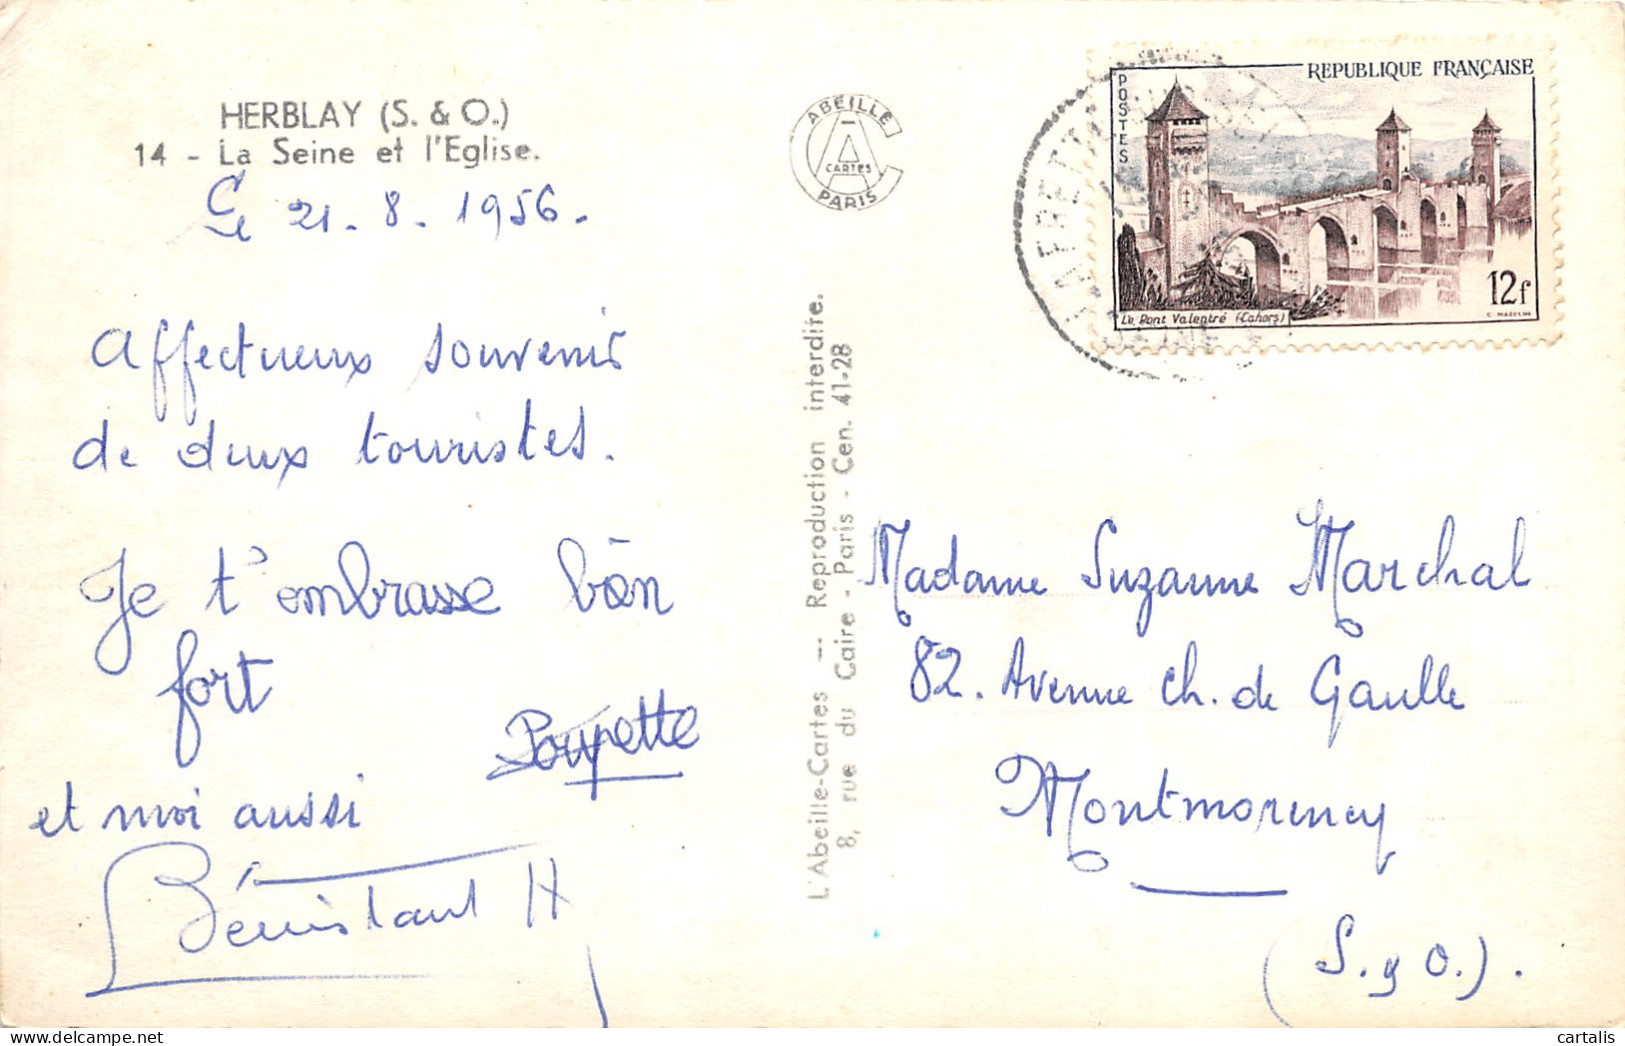 HERBLAY (S. & O.)
14 - La Seine et l'Eglise.
Le 21. 8. 1956.
Affectueux souvenir
de deux touristes.
Je t'embrasse bien
fort
Poupette
et moi aussi
Bénistant H
ABEILLE
CARTES
PARIS
L'Abeille-Cartes -- Reproduction interdite.
8, rue du Caire - Paris - Cen. 41-28
REPUBLIQUE FRANÇAISE
POSTES
12f
Le Pont Valentré (Cahors)
C. MAZELIN
Madame Suzanne Marchal
82. Avenue Ch. de Gaulle
Montmorency
(S. & O.).
cartalis